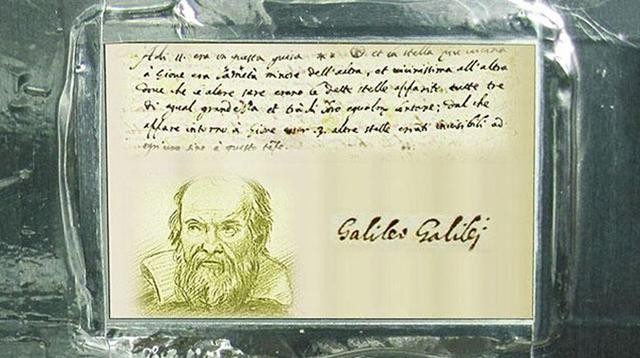 Adi 11. era in questa guisa ** et la stella più vicina
à Giove era la metà minore dell'altra, et vicinissima all'altra
dove che le altre sere erano le dette stelle apparite tutte tre
di equal grandezza et trà di loro equalm. lontane; dal che
appare intorno à Giove esser 3. altre stelle erranti invisibili ad
ogn'uno sino à questo tempo.
Galileo Galilej